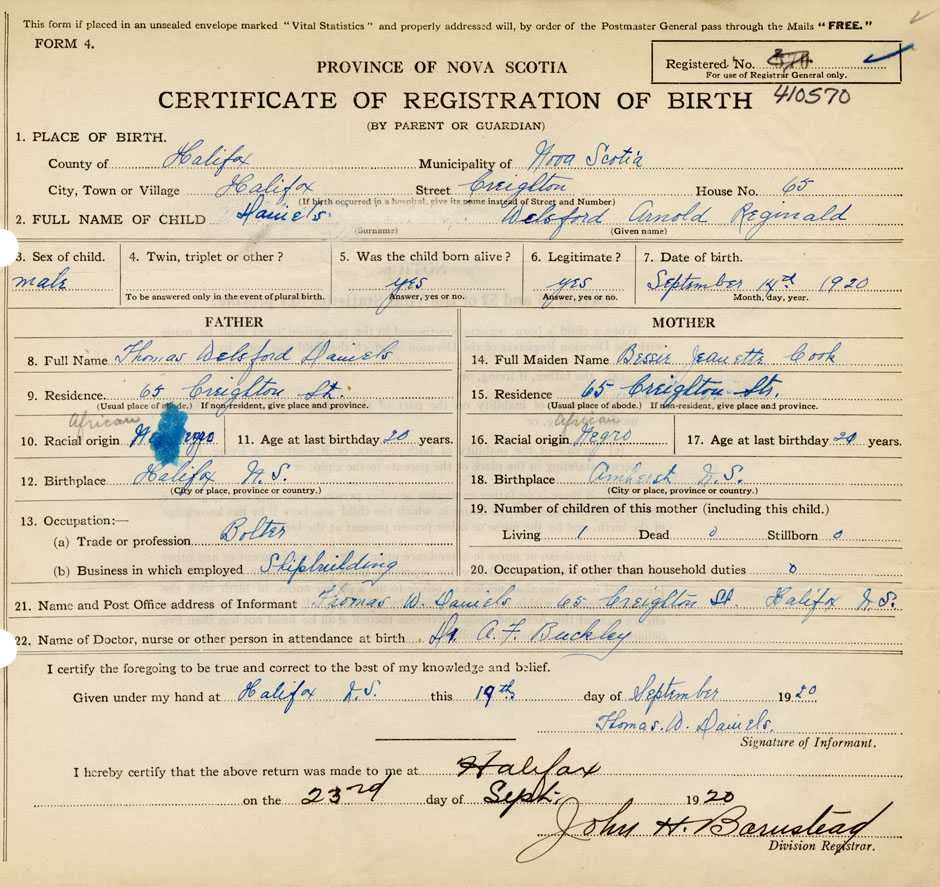 This form if placed in an unsealed envelope marked "Vital Statistics" and properly addressed will, by order of the Postmaster General pass through the Mails "FREE."
FORM 4.
Registered No.
For use of Registrar General only.
410570
PROVINCE OF NOVA SCOTIA
CERTIFICATE OF REGISTRATION OF BIRTH
(BY PARENT OR GUARDIAN)
1. PLACE OF BIRTH.
County of Halifax Municipality of Nova Scotia
City, Town or Village Halifax Street Creighton House No. 65
(If birth occurred in a hospital, give its name instead of Street and Number)
2. FULL NAME OF CHILD Daniels Welsford Arnold Reginald
(Surname) (Given name)
3. Sex of child. 4. Twin, triplet or other? 5. Was the child born alive? 6. Legitimate? 7. Date of birth.
male yes yes September 14th 1920
To be answered only in the event of plural birth. Answer, yes or no. Answer, yes or no. Month, day, year.
FATHER
8. Full Name Thomas Welsford Daniels
9. Residence. 65 Creighton St.
(Usual place of abode.) If non-resident, give place and province.
African
10. Racial origin Negro 11. Age at last birthday 20 years.
12. Birthplace Halifax N.S.
(City or place, province or country.)
13. Occupation:—
(a) Trade or profession Bolter
(b) Business in which employed Shipbuilding
MOTHER
14. Full Maiden Name Bessie Jeanette Cook
15. Residence 65 Creighton St.
(Usual place of abode.) If non-resident, give place and province.
African
16. Racial origin Negro 17. Age at last birthday years.
18. Birthplace Amherst N.S.
(City or place, province or country.)
19. Number of children of this mother (including this child.)
Living 1 Dead 0 Stillborn 0
20. Occupation, if other than household duties 0
21. Name and Post Office address of Informant Thomas W. Daniels 65 Creighton St Halifax N.S.
22. Name of Doctor, nurse or other person in attendance at birth Dr. A. F. Buckley
I certify the foregoing to be true and correct to the best of my knowledge and belief.
Given under my hand at Halifax N.S. this 19th day of September 1920
Thomas. W. Daniels.
Signature of Informant.
I hereby certify that the above return was made to me at Halifax
on the 23rd day of Sept. 1920
John H. Barnstead
Division Registrar.